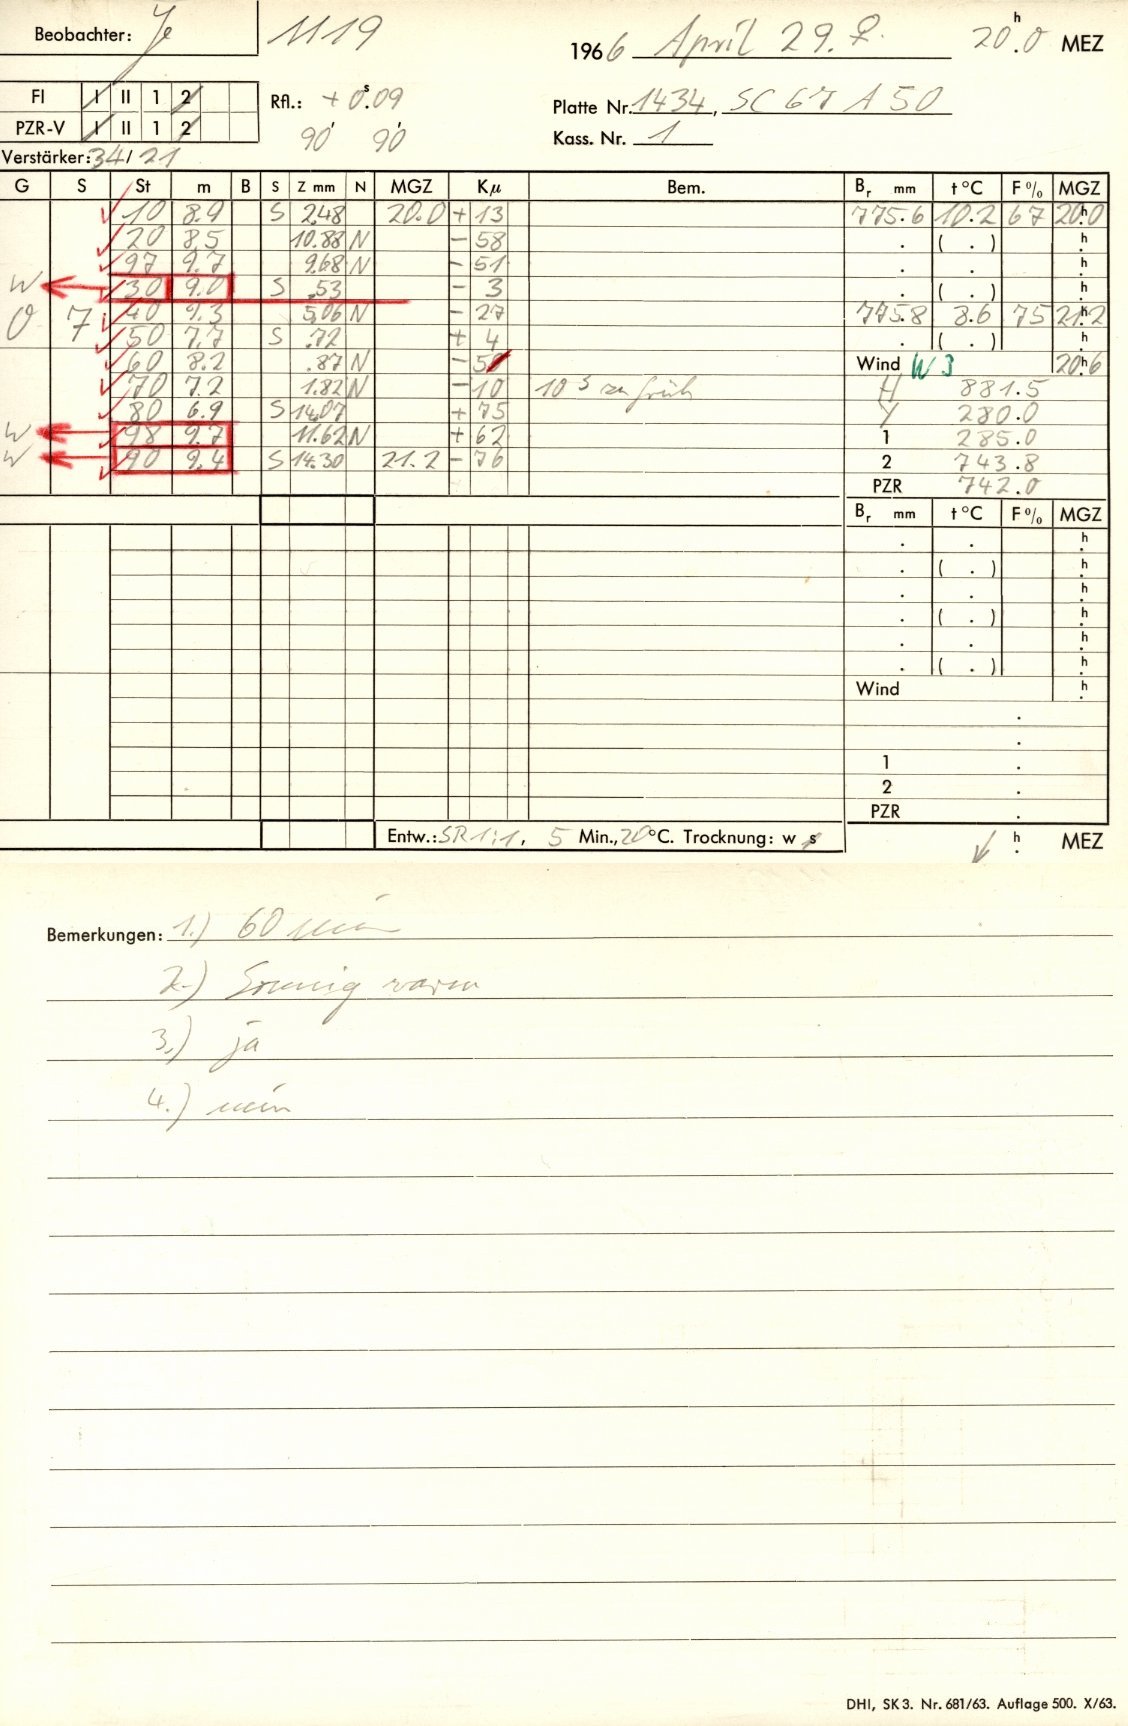 Beobachter: Je 1119 1966 April 29. ♀ 20.h0 MEZ
FI I II 1 2 Rfl.: +0.s09 Platte Nr. 1434, SC 67 A 50
PZR-V I II 1 2 90' 90' Kass. Nr. 1
Verstärker: 34/21
G S St m B S Z mm N MGZ Kμ Bem. Br mm t °C F % MGZ
10 8.9 S 2.48 20.0 + 13 775.6 10.2 67 20.h0
20 8.5 10.88 N - 58 . ( . ) h.
97 9.7 9.68 N - 51 . . h.
W 30 9.0 S .53 - 3 . ( . ) h.
0 7 40 9.3 5.06 N - 27 775.8 8.6 75 21.h2
50 7.7 S .72 + 4 . ( . ) h.
60 8.2 .87 N - 5 Wind W 3 20.h6
70 7.2 1.82 N - 10 10 s zu früh H 881.5
80 6.9 S 14.07 + 75 Y 280.0
W 98 9.7 11.62 N + 62 1 285.0
W 90 9.4 S 14.30 21.2 - 76 2 743.8
PZR 742.0
Br mm t °C F % MGZ
. . h.
. ( . ) h.
. . h.
. ( . ) h.
. . h.
. ( . ) h.
Wind h.
.
.
1 .
2 .
PZR .
Entw.: SR 1:1, 5 Min., 20 °C. Trocknung: w s h. MEZ
Bemerkungen: 1.) 60 min
2.)
3.) ja
4.) nein
DHI, SK 3. Nr. 681/63. Auflage 500. X/63.